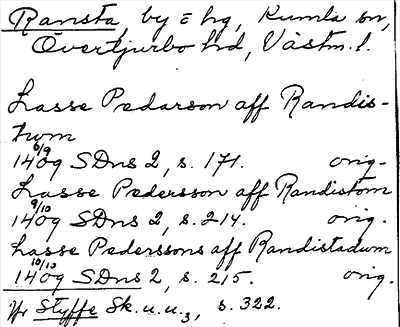 Ransta, by = hg, Kumla sn,
Övertjurbo hd, Västm. l.
Lasse Pedarson aff Randis-
twm
6/9
1409 SDns 2, s. 171. orig.
Lasse Pedersson aff Randistom
9/10
1409 SDns 2, s. 214. orig.
Lasse Pedersson aff Randistadum
10/10
1409 SDns 2, s. 215. orig.
Jfr Styffe Sk.u.u.3, s. 322.